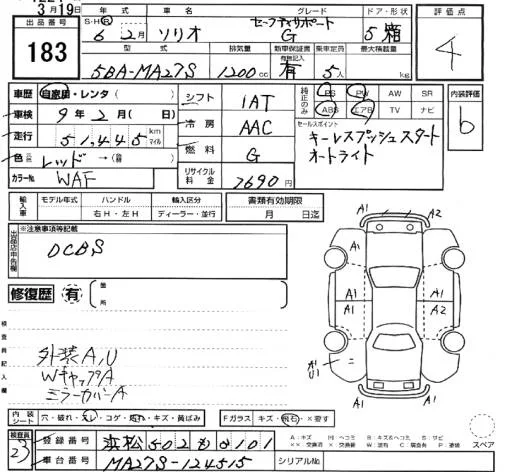 3月19日
出品番号 183
S・H・R 年式 車名 グレード ドア・形状 評価点
6年 2月 ソリオ セーフティサポート G 5 箱 4
型式 排気量 新車保証書 有無記入 乗車定員 最大積載量
5BA-MA27S 1200cc 有 5人 kg
車歴 自家用・レンタ( ) シフト 1AT 純正のみ PS PW AW SR 内装評価
車検 9年 2月( 日) 冷房 AAC ABS エアB TV ナビ b
走行 51,445 km マイル セールスポイント
色 レッド→ 燃料 G キーレスプッシュスタート
カラーNo. WAF リサイクル料金 7690円 オートライト
輸入車 モデル年式 ハンドル 輸入区分 書類有効期限
右H・左H ディーラー・並行 月 日迄
出品店申告欄 ※注意事項等記載
DCBS
修復歴 有 箇所
検査員記入欄
外装A,U
WキャップA
ミラーカバーA
A1 A2
A1 A1
A1 A1
A1 A2
A1 U1
A1
A1 A1
内装シート 穴・破れ・スレ・コゲ・汚れ・キズ・黄ばみ Fガラス キズ・飛石・×要す
検査員 23
登録番号 浜松502も0101
A:キズ H:ヘコミ B:キズ&ヘコミ S:サビ
スペア
車台番号 MA27S-124515 シリアルNo.